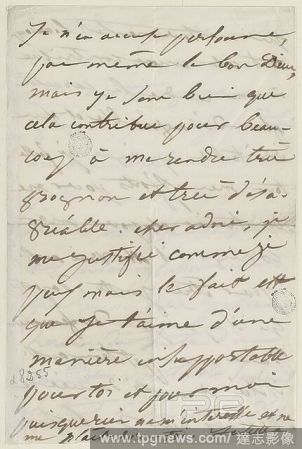 Je n'en accuse personne,
pas même le bon Dieu,
mais je sens bien que
cela contribue pour beau-
coup à me rendre très
grognon et très désa-
gréable. cher adoré, je
me justifie comme je
puis mais le fait est
que je t'aime d'une
manière insupportable
pour toi et pour moi
puisque rien ne m'intéresse et ne
me plait
28255
TPG
www.tpgnews.com/ 達志影像